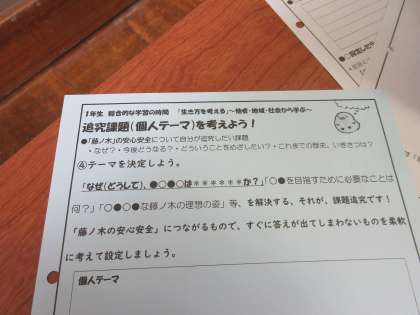 1年生 総合的な学習の時間 「生き方を考える」～他者・地域・社会から学ぶ～
追究課題(個人テーマ)を考えよう！
●「藤ノ木」の安心安全について自分が追究したい課題
・なぜ？・今後どうなる？・どういうことをめざしたい？・これまでの歴史、いきさつは？
④テーマを決定しよう。
「なぜ(どうして)、●○●○は＊＊＊＊＊＊か？」「○●を目指すために必要なことは
何？」「○●○●な藤ノ木の理想の姿」等、を解決する、それが、課題追究です！
「藤ノ木の安心安全」につながるもので、すぐに答えが出てしまわないものを柔軟
に考えて設定しましょう。
個人テーマ